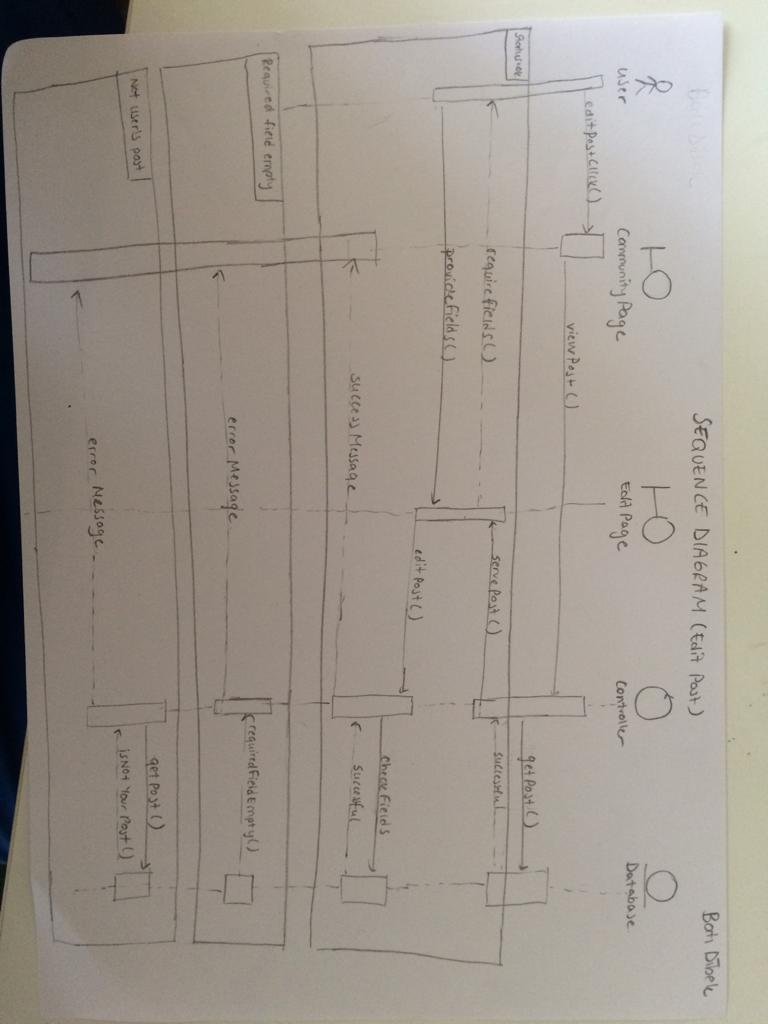 Batı Dibek
SEQUENCE DIAGRAM (Edit Post)
user
Community Page
Edit Page
Controller
Database
editPostClick()
viewPost()
getPost()
successful
servePost()
requireFields()
provideFields()
editPost()
checkFields
successful
success Message
Required field empty
requiredFieldEmpty()
error Message
Not user's post
getPost()
isNotYourPost()
error Message